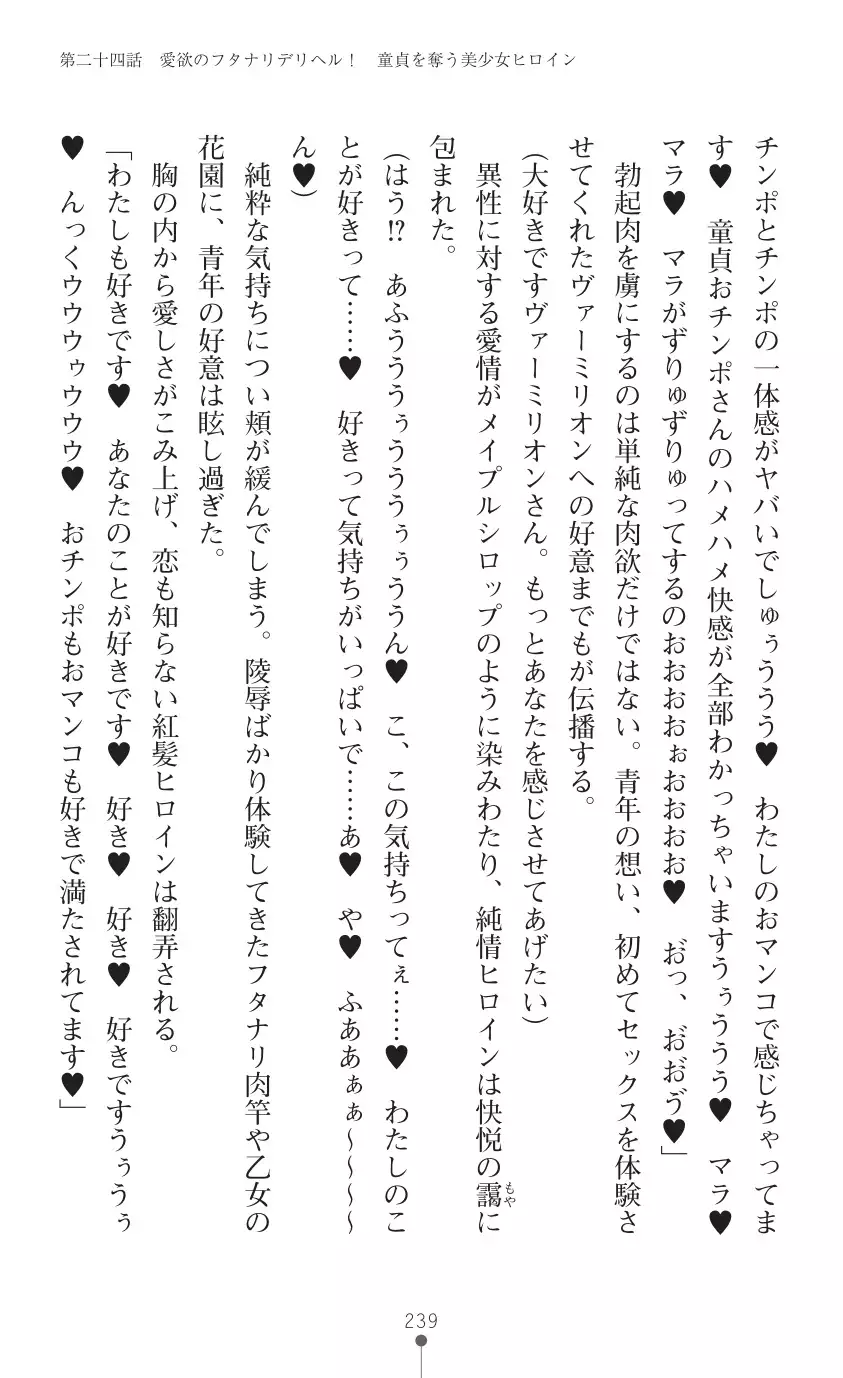 第二十四話　愛欲のフタナリデリヘル！　童貞を奪う美少女ヒロイン
チンポとチンポの一体感がヤバいでしゅぅううう♥　わたしのおマンコで感じちゃってま
す♥　童貞おチンポさんのハメハメ快感が全部わかっちゃいますうぅううう♥　マラ♥
マラ♥　マラがずりゅずりゅってするのおおおおぉおおおお♥　お゛っ、お゛お゛ゔ♥」
　勃起肉を虜にするのは単純な肉欲だけではない。青年の想い、初めてセックスを体験さ
せてくれたヴァーミリオンへの好意までもが伝播する。
（大好きですヴァーミリオンさん。もっとあなたを感じさせてあげたい）
　異性に対する愛情がメイプルシロップのように染みわたり、純情ヒロインは快悦の靄（もや）に
包まれた。
（はう!?　あふうううぅうううぅぅううん♥　こ、この気持ちってぇ……♥　わたしのこ
とが好きって……♥　好きって気持ちがいっぱいで……あ♥　や♥　ふああぁぁ～～～～
ん♥）
　純粋な気持ちについ頬が緩んでしまう。陵辱ばかり体験してきたフタナリ肉竿や乙女の
花園に、青年の好意は眩し過ぎた。
　胸の内から愛しさがこみ上げ、恋も知らない紅髪ヒロインは翻弄される。
「わたしも好きです♥　あなたのことが好きです♥　好き♥　好き♥　好きですうぅうぅ
♥　んっくウウウゥウウウ♥　おチンポもおマンコも好きで満たされてます♥」
239